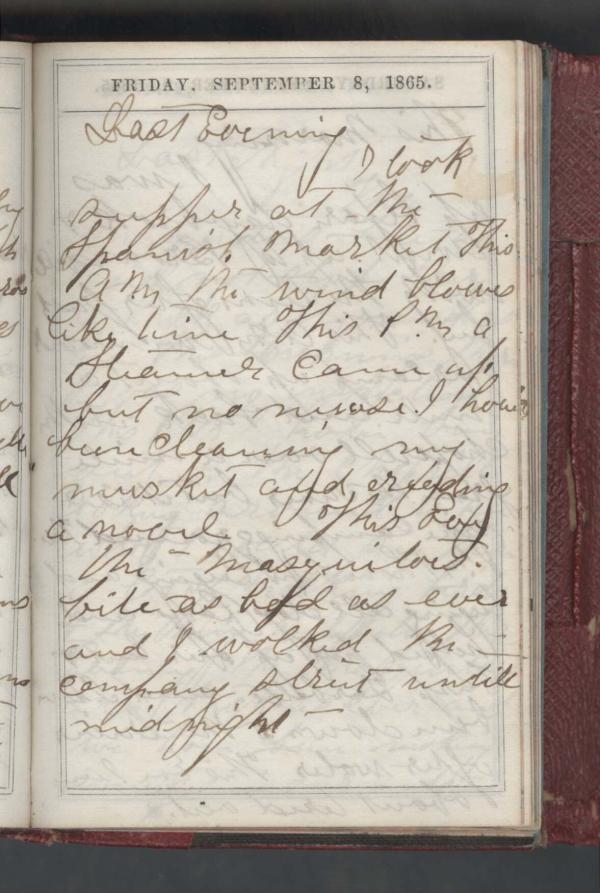 FRIDAY, SEPTEMBER 8, 1865.
Last Evening
I took
supper at the
Spanish Market This
AM the wind blows
like time This P.M a
Steamer came up
but no niwse. I have
bin cleaning my
musket and reading
a novel This Eve
the Masquitoes.
bite as bad as ever
and I walked the
company street untill
midnight